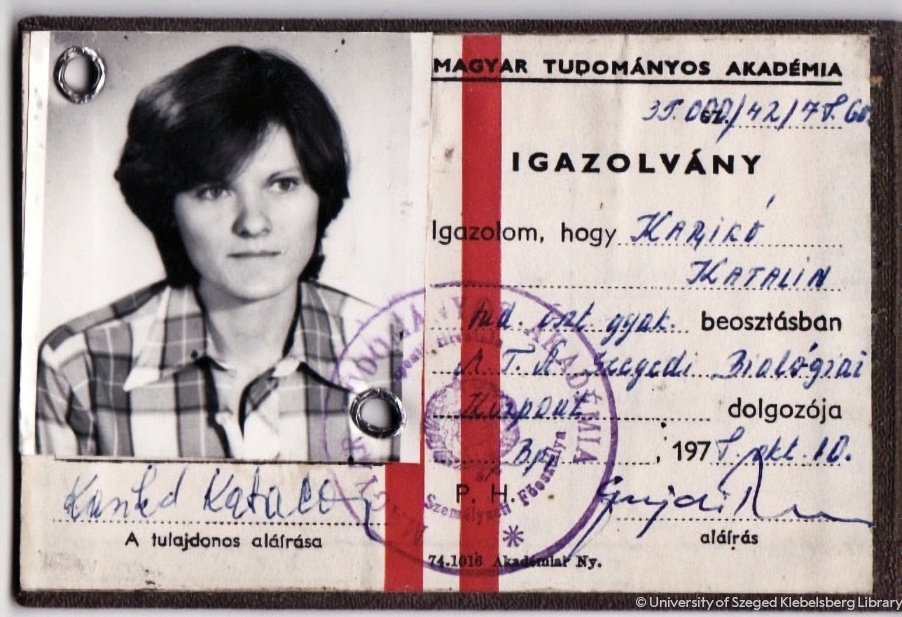 MAGYAR TUDOMÁNYOS AKADÉMIA
35.000/42/78. Gl.
IGAZOLVÁNY
Igazolom, hogy KARIKÓ
KATALIN
tud. öszt. gyak. beosztásban
M. T. A. Szegedi Biológiai
Központ dolgozója
Bp., 1978. okt. 10.
P. H.
Személyzeti Főosztálya
Karikó Katalin
A tulajdonos aláírása
aláírás
74.1016 Akadémiai Ny.
© University of Szeged Klebelsberg Library